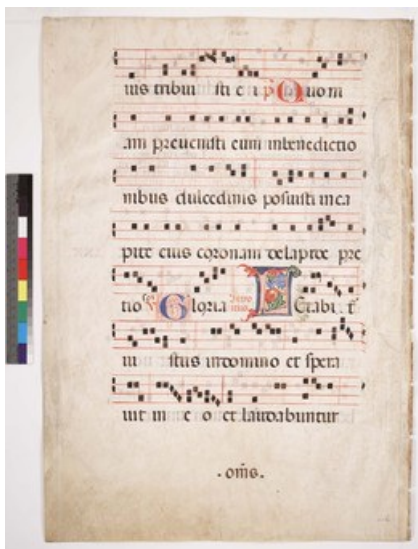 ius tribuisti ei p̄ Quom
am prevenisti eum inbenedictio
nibus dulcedinis posuisti inca
pite eius coronam delapide pre
tio Gloria Letabit᷑
iustus indomino et spera
uit in eo et laudabuntur
.om̄s.